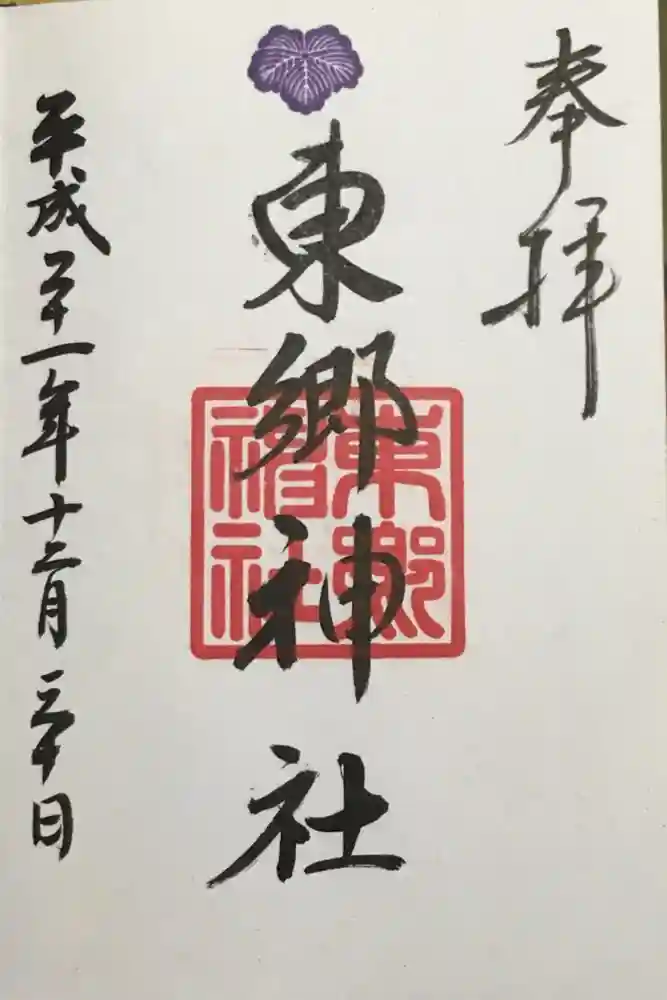 奉拝
東郷神社
東郷
神社
平成二十一年十二月三十日